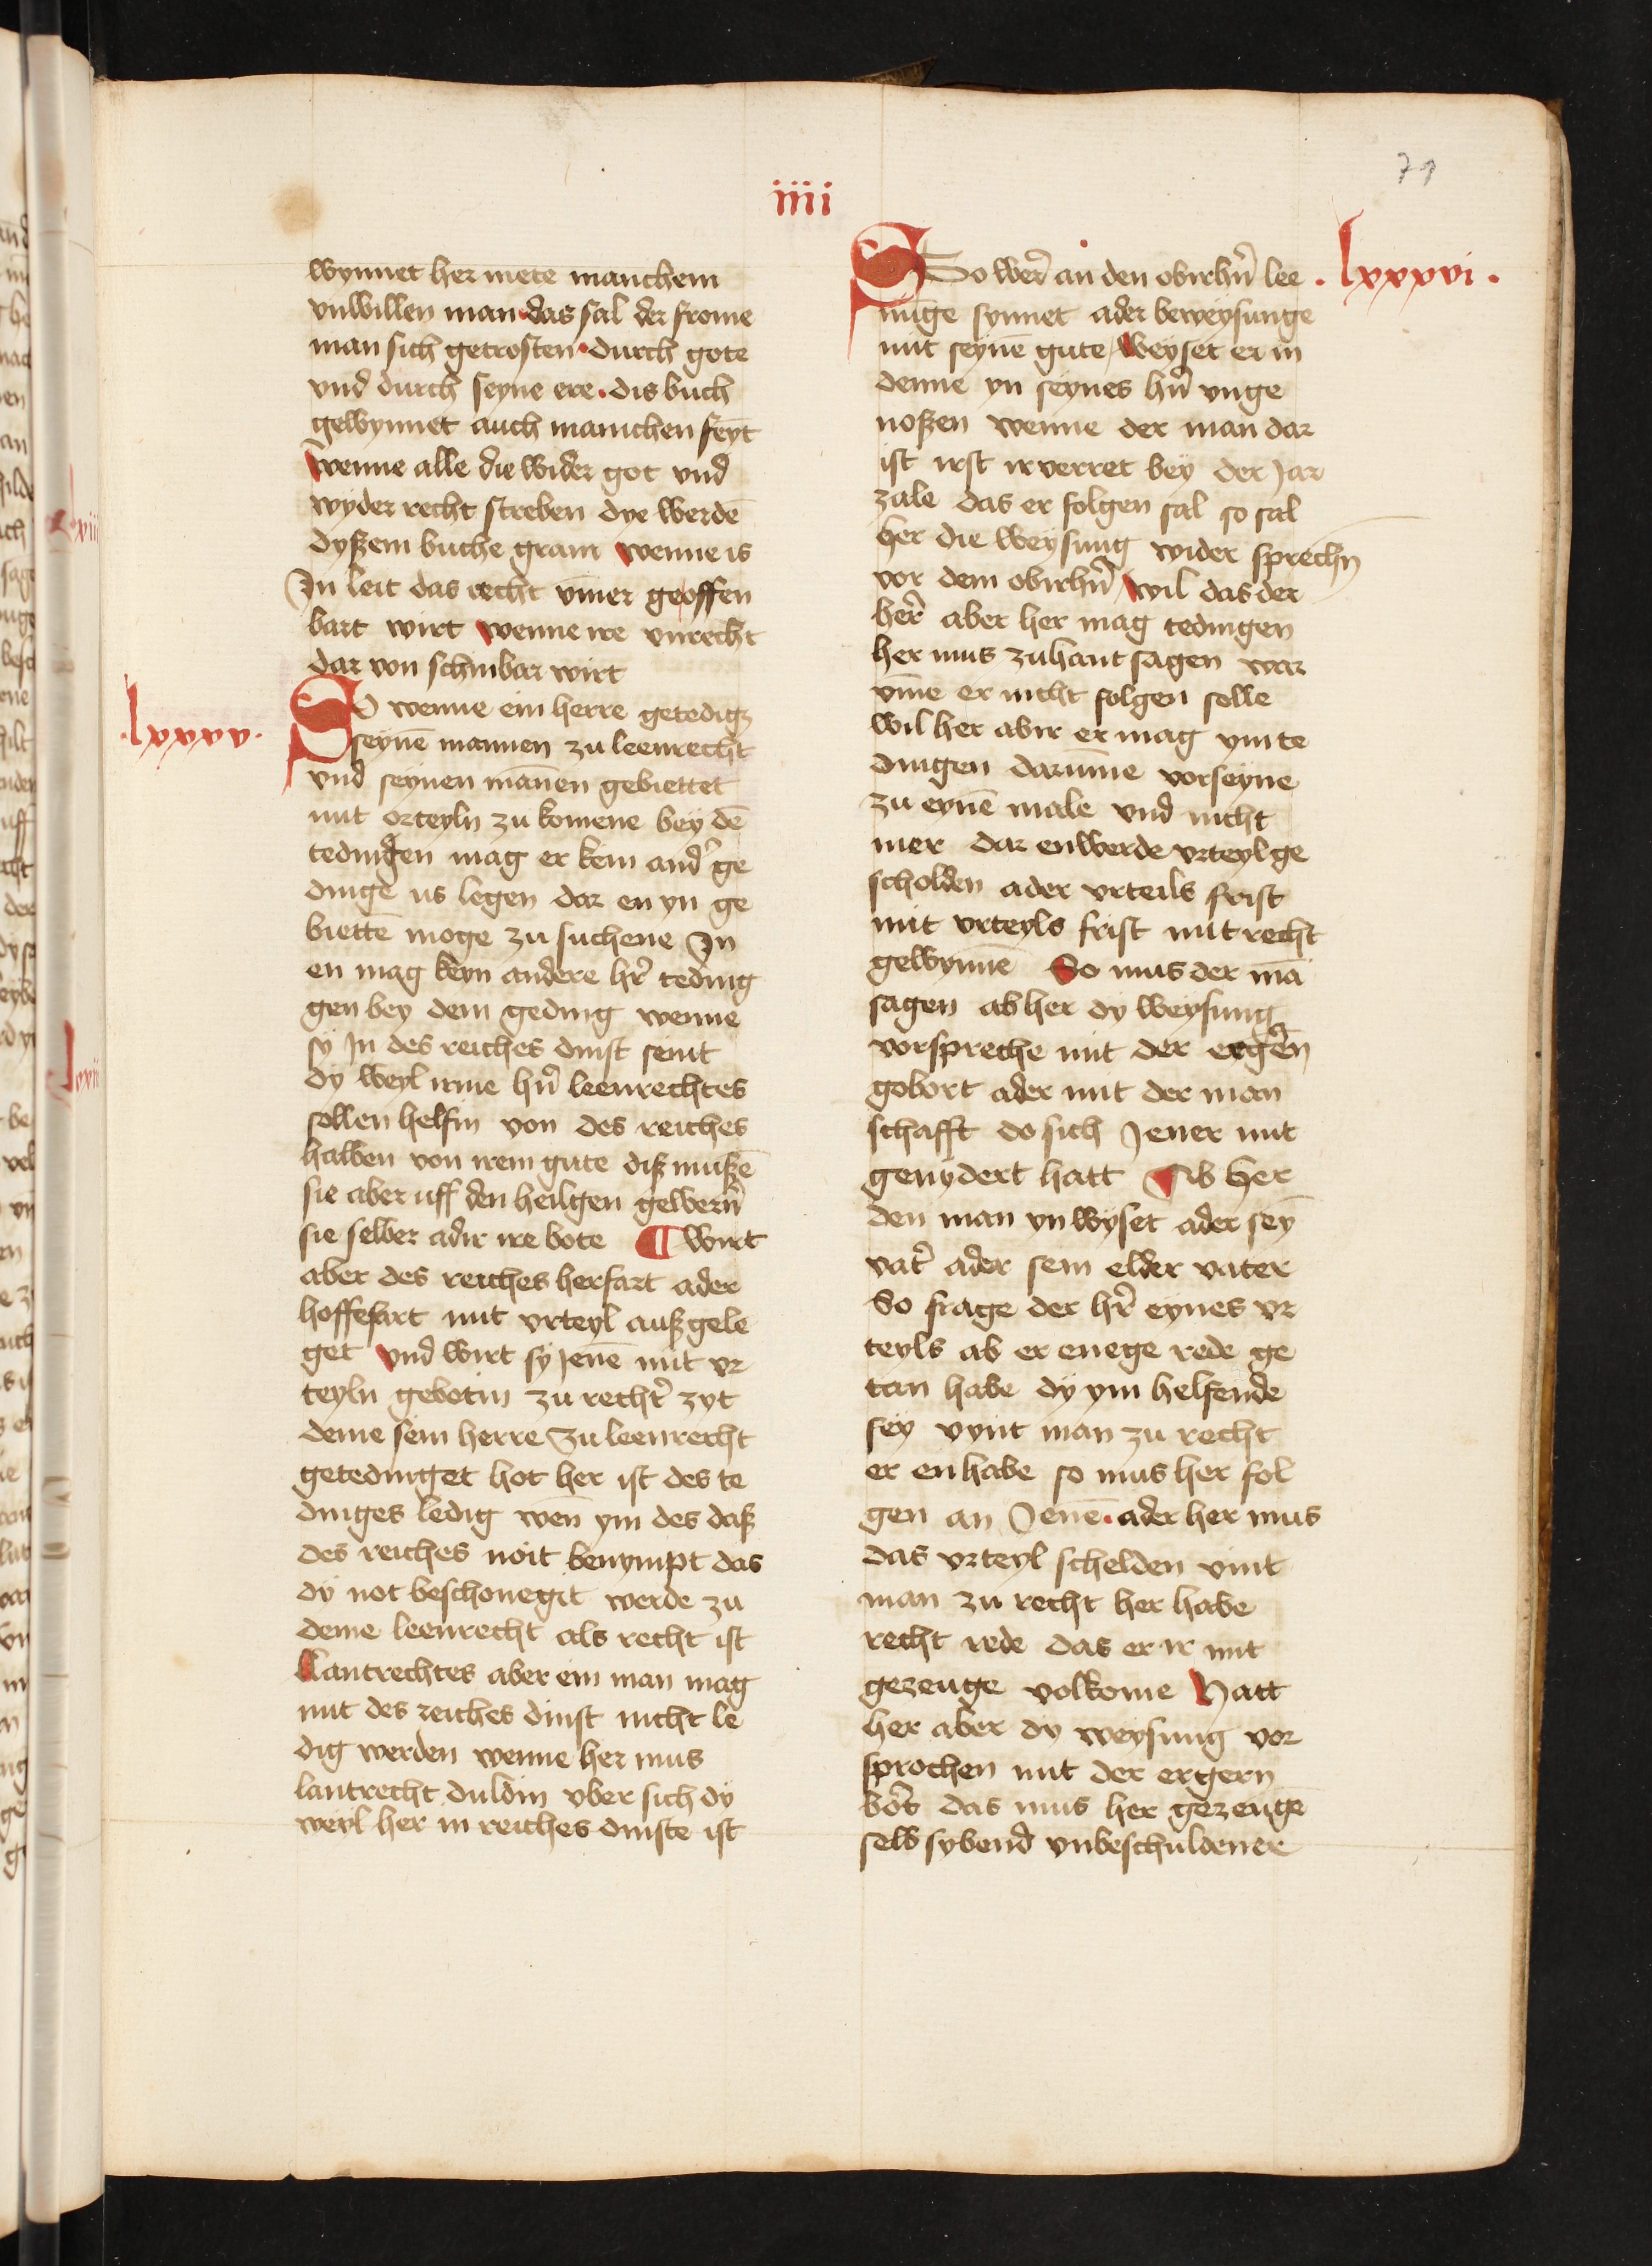 79
iiii
wynnet her mete manchem
vnwillen man das sal der frome
man sich getrosten durch gote
vnd durch seyne ere. dis buch
gewynnet auch manichen feyt
wenne alle die wider got vnd
wyder recht streben dye werdē
dyßem buche gram wenne is
In leit das recht vm̄er geoffen
bart wirt wenne ire vnrecht
dar von schinbar wirt
.lxxxv.
SO wenne ein herre getedig
seynē mannen zu leenrecht
vnd seynen mānen gebiettet
mit orteyln zu komene bey dē
tedingen mag er kein and' ge
dinge us legen dar en yn ge
biettē moge zu suchene In
en mag keyn andere hr̄ teding
gen bey dem geding wenne
sy In des reiches dinst seint
dy weyl irme hn̄ leenrechtes
sollen helfin von des reiches
halben von irem gute diß mußē
sie aber uff den heilgen gewern̄
sie selber adir ire bote ¶ Wirt
aber des reiches herfart ader
hoffefart mit vrteyl außgele
get vnd wirt sy Jenē mit vr
teyln gebotin zu recht' zyt
deme sein herre zu leenrecht
getedinget hot her ist des te
dinges ledig wen̄ ym des daß
des reiches noit benympt das
dy not beschonegit werde zu
deme leenrecht als recht ist
Lantrechtes aber ein man mag
mit des reiches dinst nicht le
dig werden wenne her mus
lantrecht duldin vber sich dy
weyl her in reiches dinste ist
.lxxxvi.
SSo wer̄ an den obirhn̄ lee
nūge synnet ader beweysunge
mit seynē gute, weyset er in
denne yn seynes hn̄ vnge
noßen wenne der man dar
ist irst irverret bey der Jar
zale das er folgen sal so sal
her die weysung wider sprechn̄
vor dem obirhn̄, wil das der
her̄ aber her mag tedingen
her mus zuhant sagen war
vm̄e er nicht folgen solle
wil her abir er mag ymte
dingen darum̄e vorseyne
zu eynē male vnd nicht
mer dar enwerde vrteyl ge
scholden ader vrteils frist
mit vrteyls frist mit recht
gewynnē So mus der mā
sagen ab her dy weysung
vorspreche mit der ergern̄
gobort ader mit der man
schafft do sich Jener mit
genydert hatt Ab her
den man yn wyset ader seȳ
vat' ader sein elder vater
So frage der hr̄ eynes vr
teyls ab er enege rede ge
tan habe dy ym helfende
sey vynt man zu recht
er en habe so mus her fol
gen an Jenē. ader her mus
das vrteyl schelden vint
man zu recht her habe
recht rede das er ir mit
gezeuge volkome Hatt
her aber dy weysung vor
sprochen mit der ergern
bort das mus her gezeuge
selb sybend vnbeschuldener